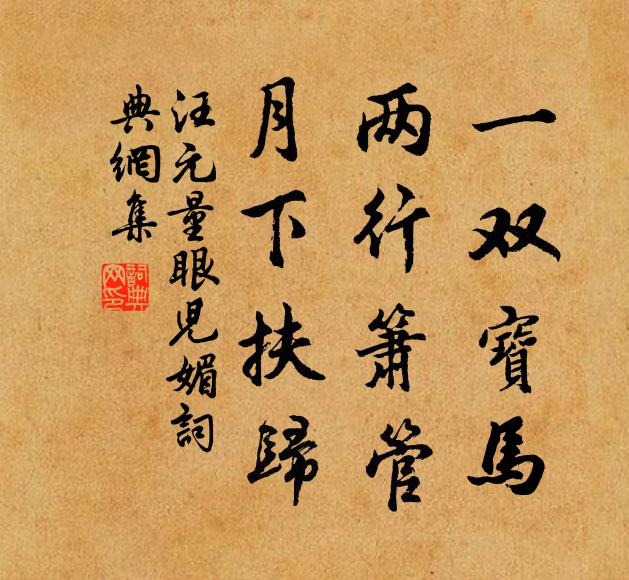 一双寶馬
两行箫管
月下扶歸
汪元量眼儿媚詞
典網集
詞典網印